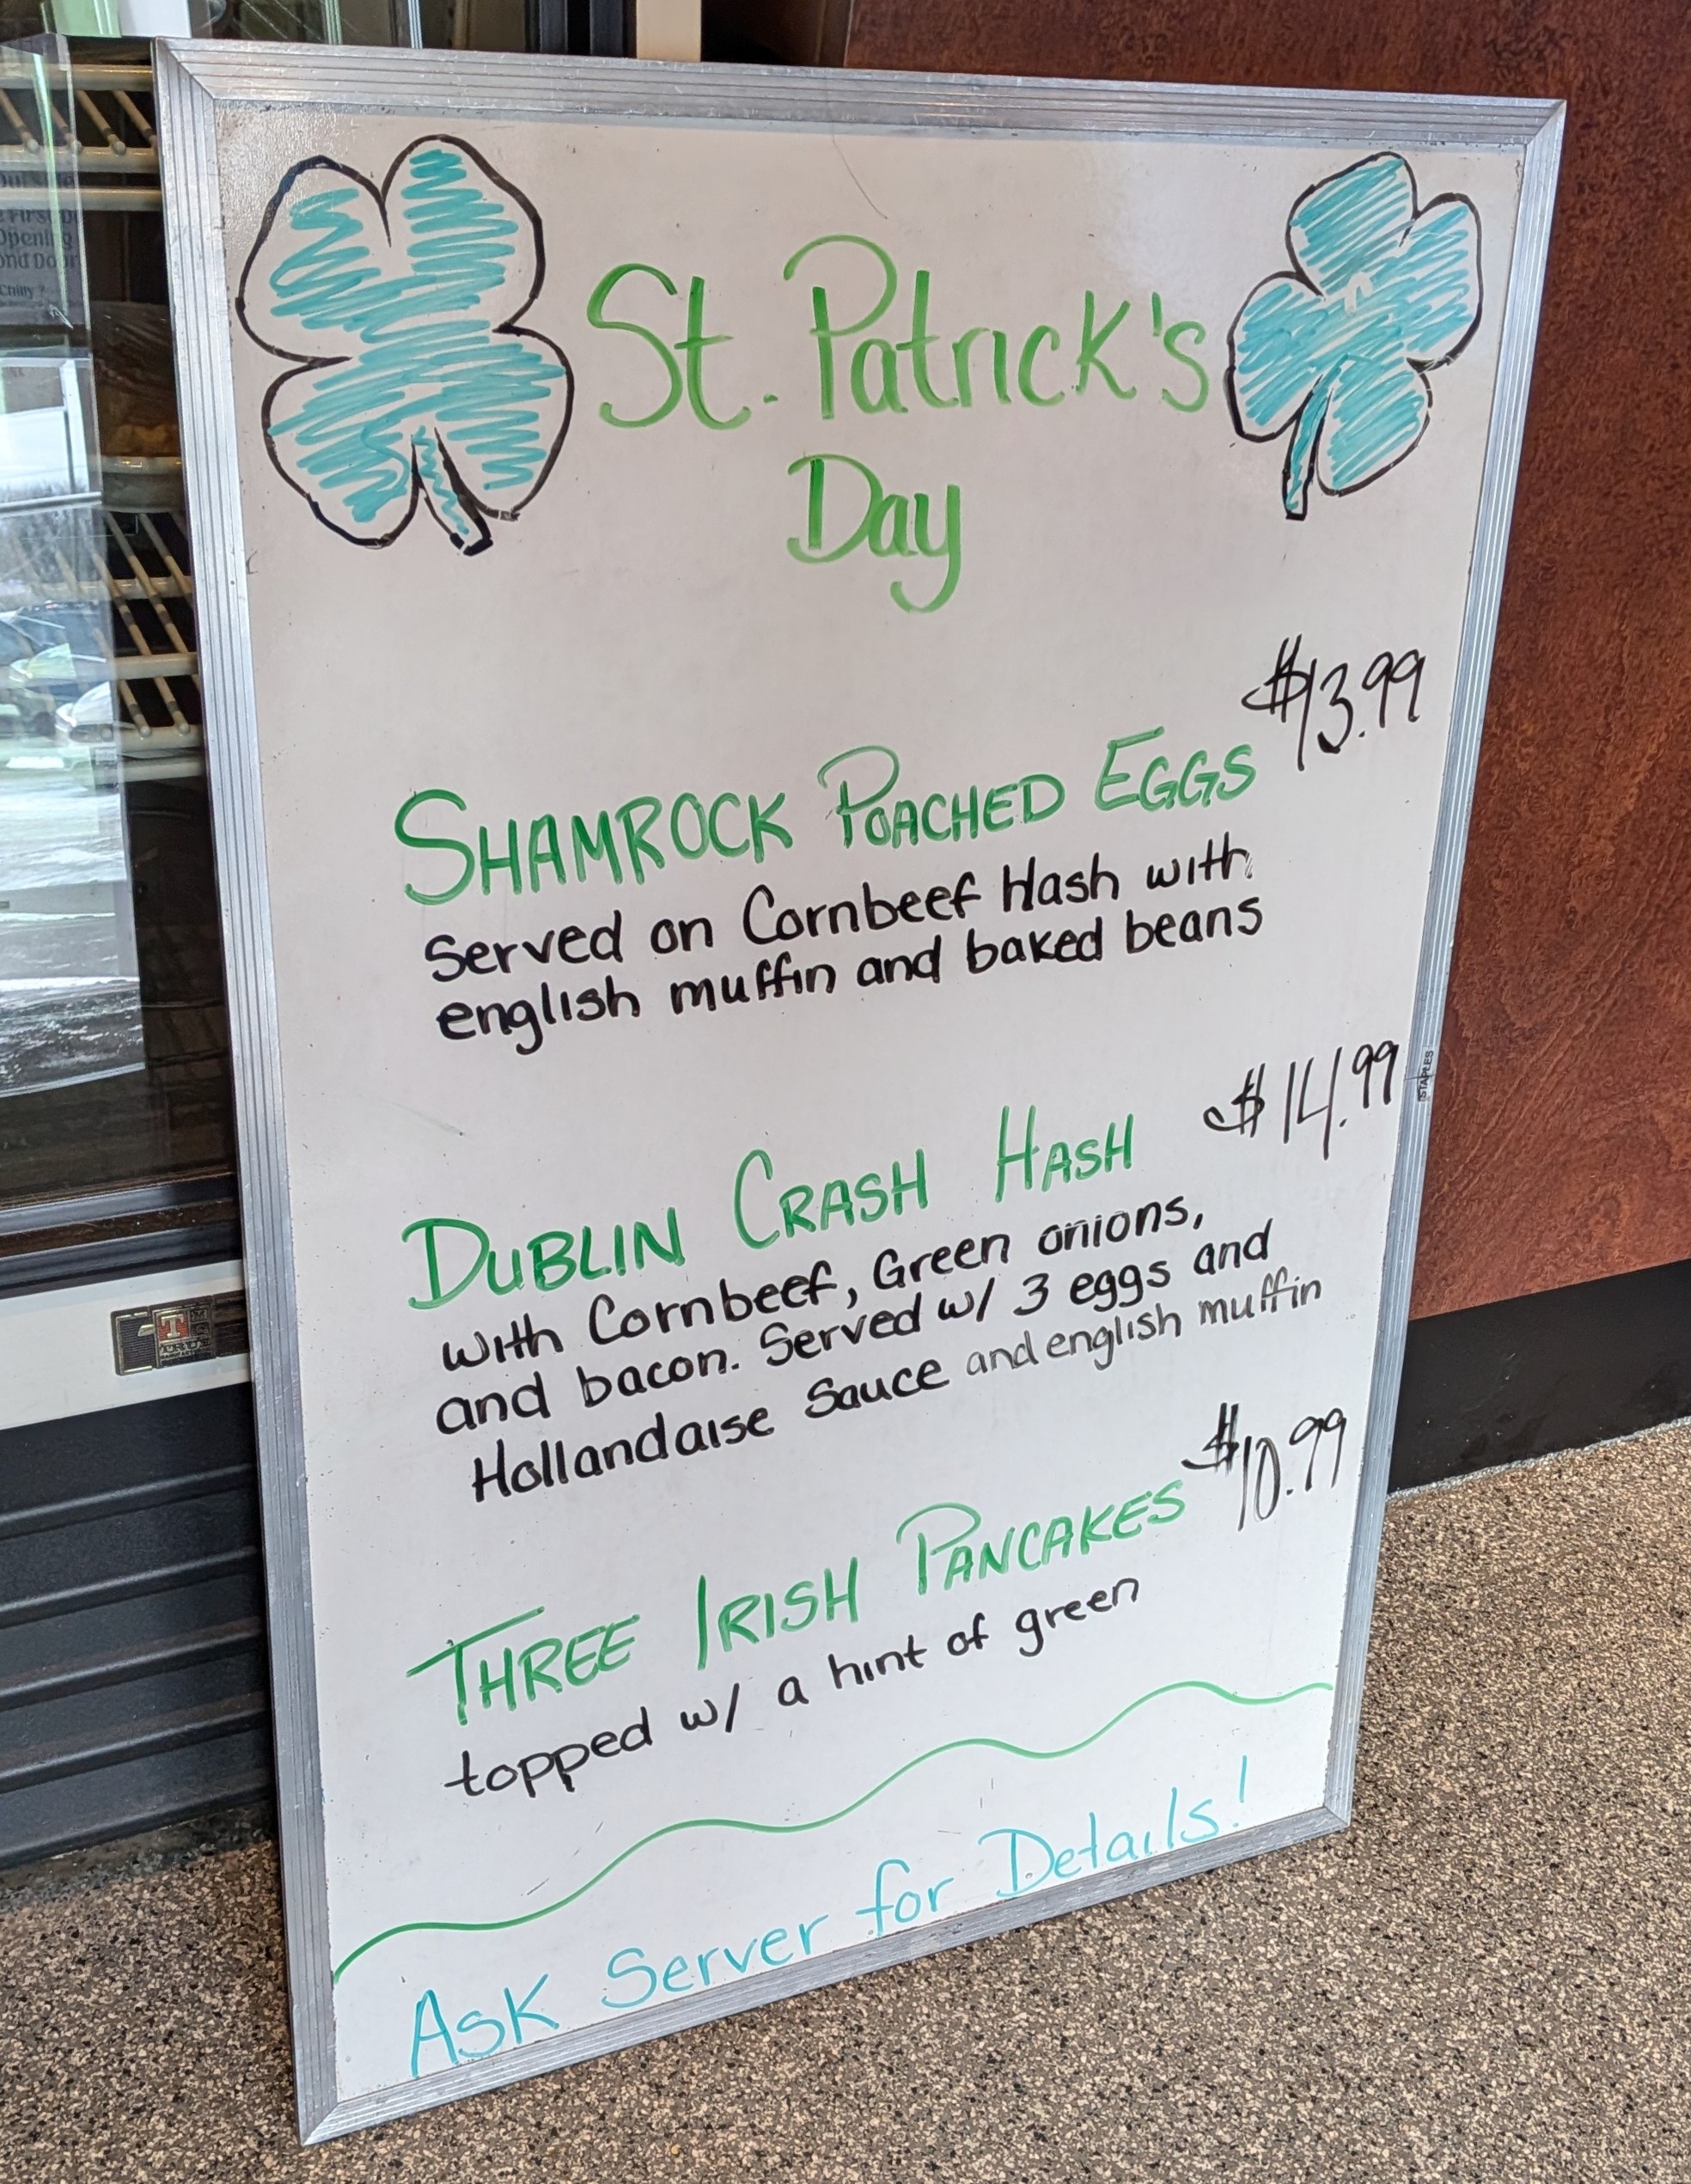 St. Patrick's
Day
$13.99
SHAMROCK POACHED EGGS
Served on Cornbeef Hash with
english muffin and baked beans
$14.99
DUBLIN CRASH HASH
with Cornbeef, Green onions,
and bacon. Served w/ 3 eggs and
Hollandaise Sauce and english muffin
$10.99
THREE IRISH PANCAKES
topped w/ a hint of green
Ask Server for Details!
STAPLES
Opening